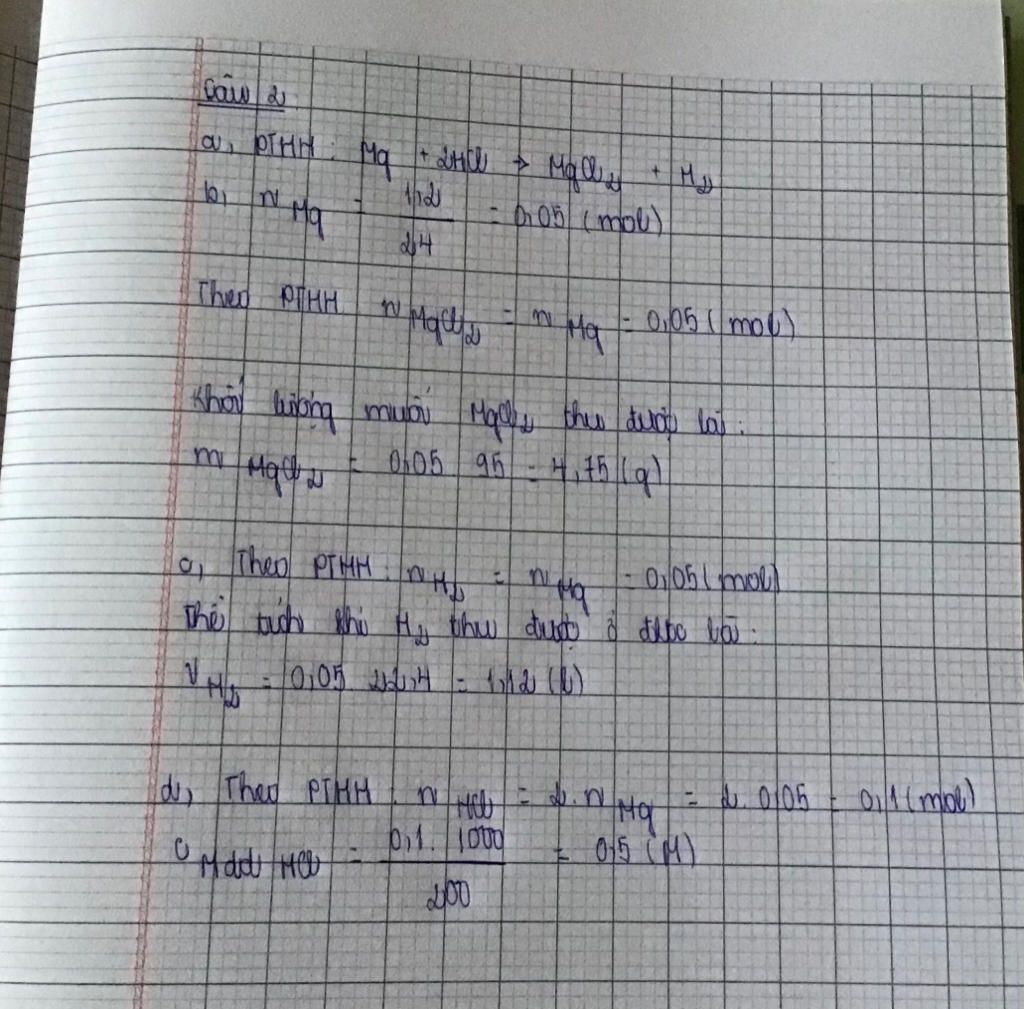 Câu 2.
a, PTHH: Mg + 2HCl → MgCl2 + H2
b, n Mg = 1,2 / 24 = 0,05 (mol)
Theo PTHH n MgCl2 = n Mg = 0,05 (mol)
Khối lượng muối MgCl2 thu được là:
m MgCl2 = 0,05 95 = 4,75 (g)
c, Theo PTHH: n H2 = n Mg = 0,05 (mol)
Thể tích khí H2 thu được ở đktc là:
V H2 = 0,05 22,4 = 1,12 (l)
d, Theo PTHH: n HCl = 2. n Mg = 2. 0,05 = 0,1 (mol)
C M dd HCl = 0,1. 1000 / 200 = 0,5 (M)